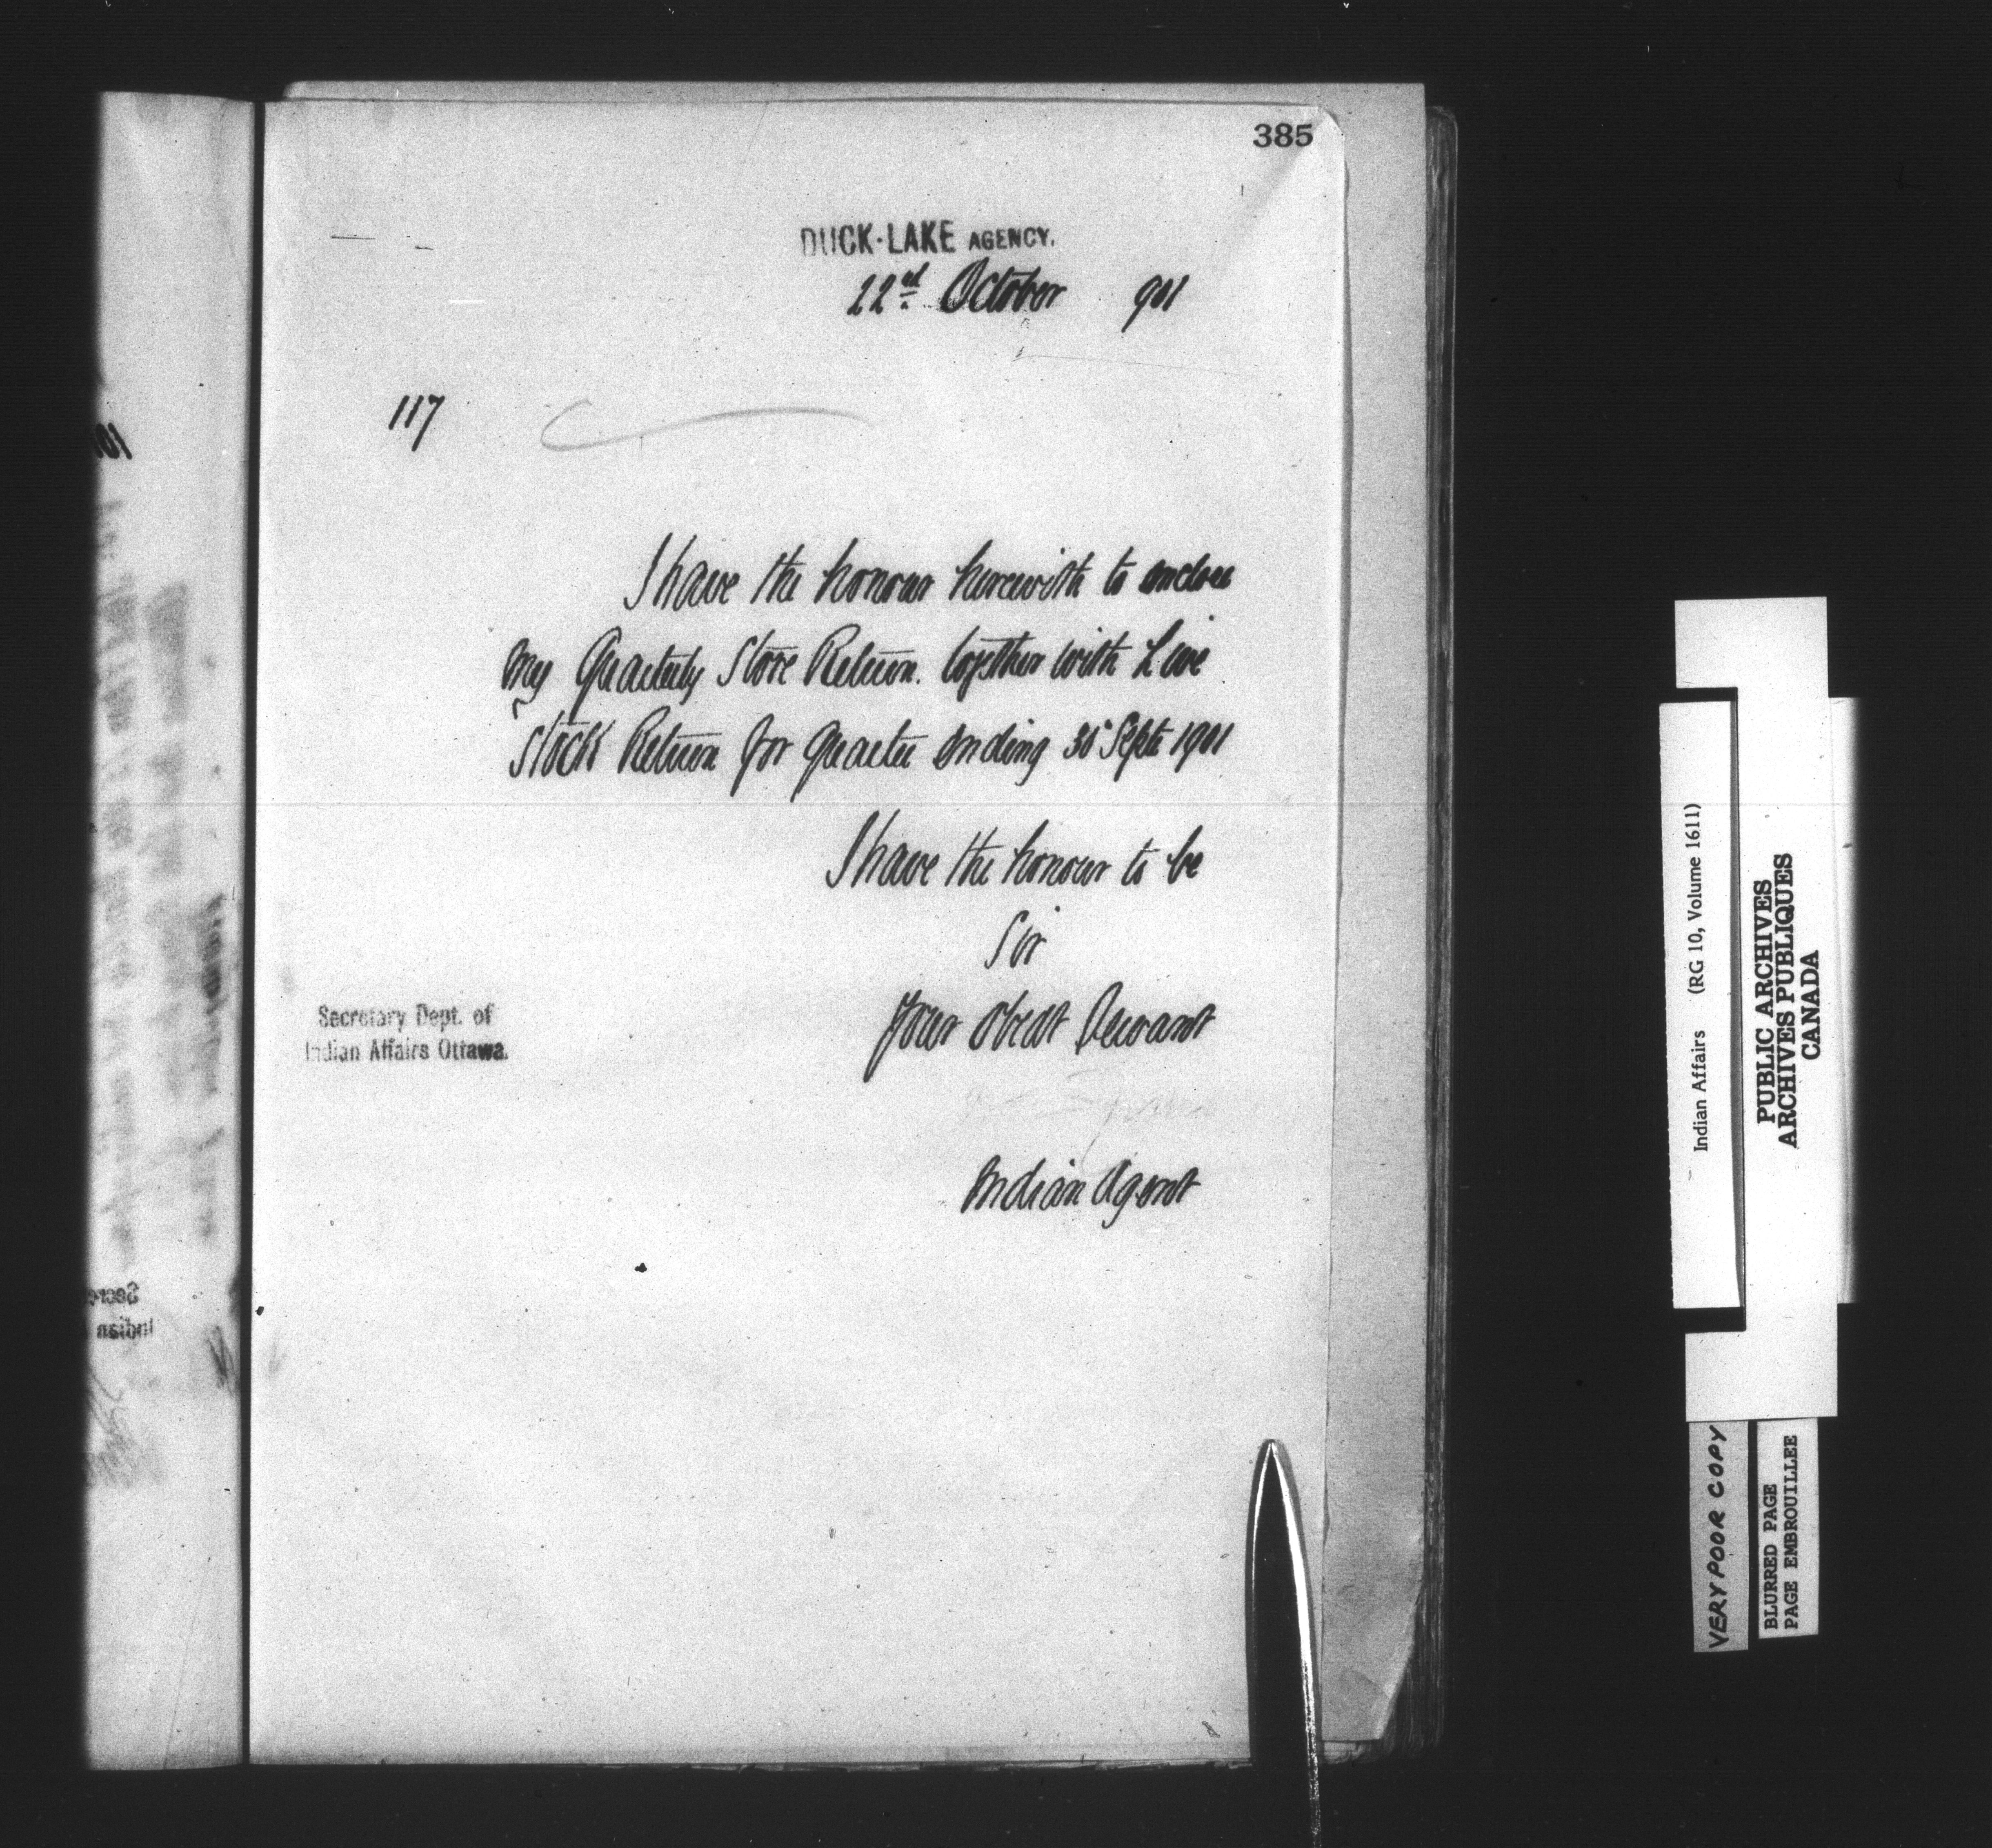 385
DUCK-LAKE AGENCY.
22nd October 901
117
I have the honour herewith to enclose
my Quarterly Store Return. together with Live
Stock Return for Quarter ending 30 Septr 1901
I have the honour to be
Sir
Your Obedt Servant
Secretary Dept. of
Indian Affairs Ottawa.
Indian Agent
Indian Affairs (RG 10, Volume 1611)
PUBLIC ARCHIVES
ARCHIVES PUBLIQUES
CANADA
VERY POOR COPY
BLURRED PAGE
PAGE EMBROUILLEE